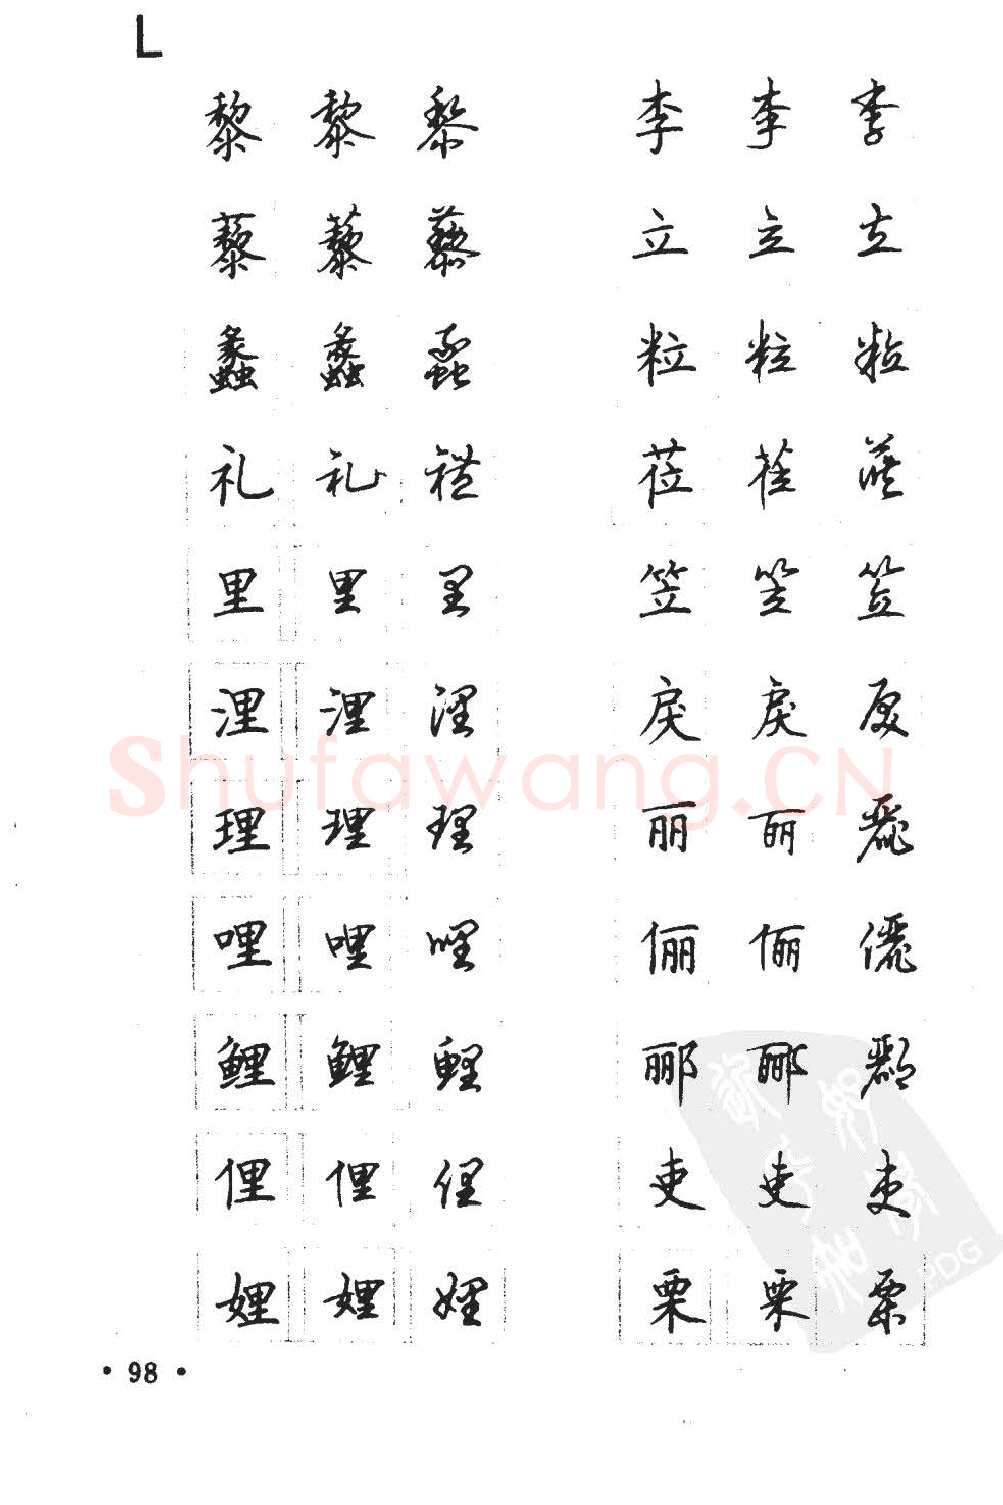 L
黎 黎 黎 李 李 李
藜 藜 藜 立 立 立
蠡 蠡 蠡 粒 粒 粒
礼 礼 禮 莅 莅 蒞
里 里 里 笠 笠 笠
浬 浬 浬 戾 戾 戾
理 理 理 丽 丽 麗
Shufawang.CN
哩 哩 哩 俪 俪 儷
鲤 鲤 鲤 郦 郦 酈
俚 俚 俚 吏 吏 吏
娌 娌 娌 栗 栗 栗
PDG
• 98 •